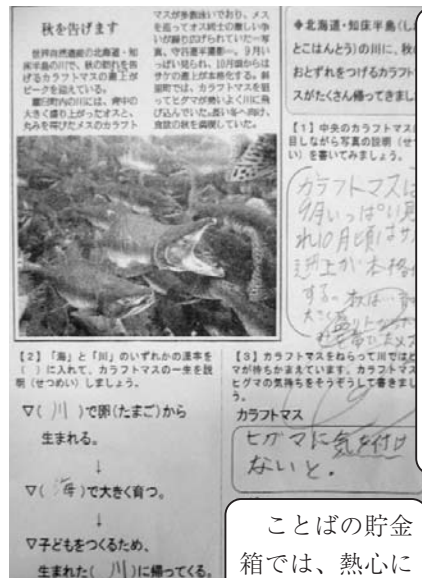 秋を告げます
世界自然遺産の北海道・知
床半島の川で、秋の訪れを告
げるカラフトマスの遡上が
ピークを迎えている。
町内の川には、背中の
大きく盛り上がったオスと、
丸みを帯びたメスのカラフト
マスが多数泳いでおり、メス
を巡ってオス同士の激しい争
いが繰り広げられていた=写
真、守谷遼平撮影=。9月い
っぱい見られ、10月頃からは
サケの遡上が本格化する。斜
里町では、カラフトマスを狙
ってヒグマが勢いよく川に飛
び込んでいた。長い冬へ向け、
食欲の秋を満喫していた。
◆北海道・知床半島(し
とこはんとう)の川に、秋
おとずれをつげるカラフト
スがたくさん帰ってきまし
【1】中央のカラフトマス
目しながら写真の説明(せ
い)を書いてみましょう。
カラフトマスは
9月いっぱい見
れ10月頃はサ
遡上が本格
する。
【2】「海」と「川」のいずれかの漢字を
( )に入れて、カラフトマスの一生を説
明(せつめい)しましょう。
▽(川)で卵(たまご)から
生まれる。
↓
▽(海)で大きく育つ。
↓
▽子どもをつくるため、
生まれた(川)に帰ってくる。
【3】カラフトマスをねらって川ではヒ
マが待ちかまえています。カラフトマス
ヒグマの気持ちをそうぞうして書きまし
う。
カラフトマス
ヒグマに気を付け
ないと。
ことばの貯金
箱では、熱心に